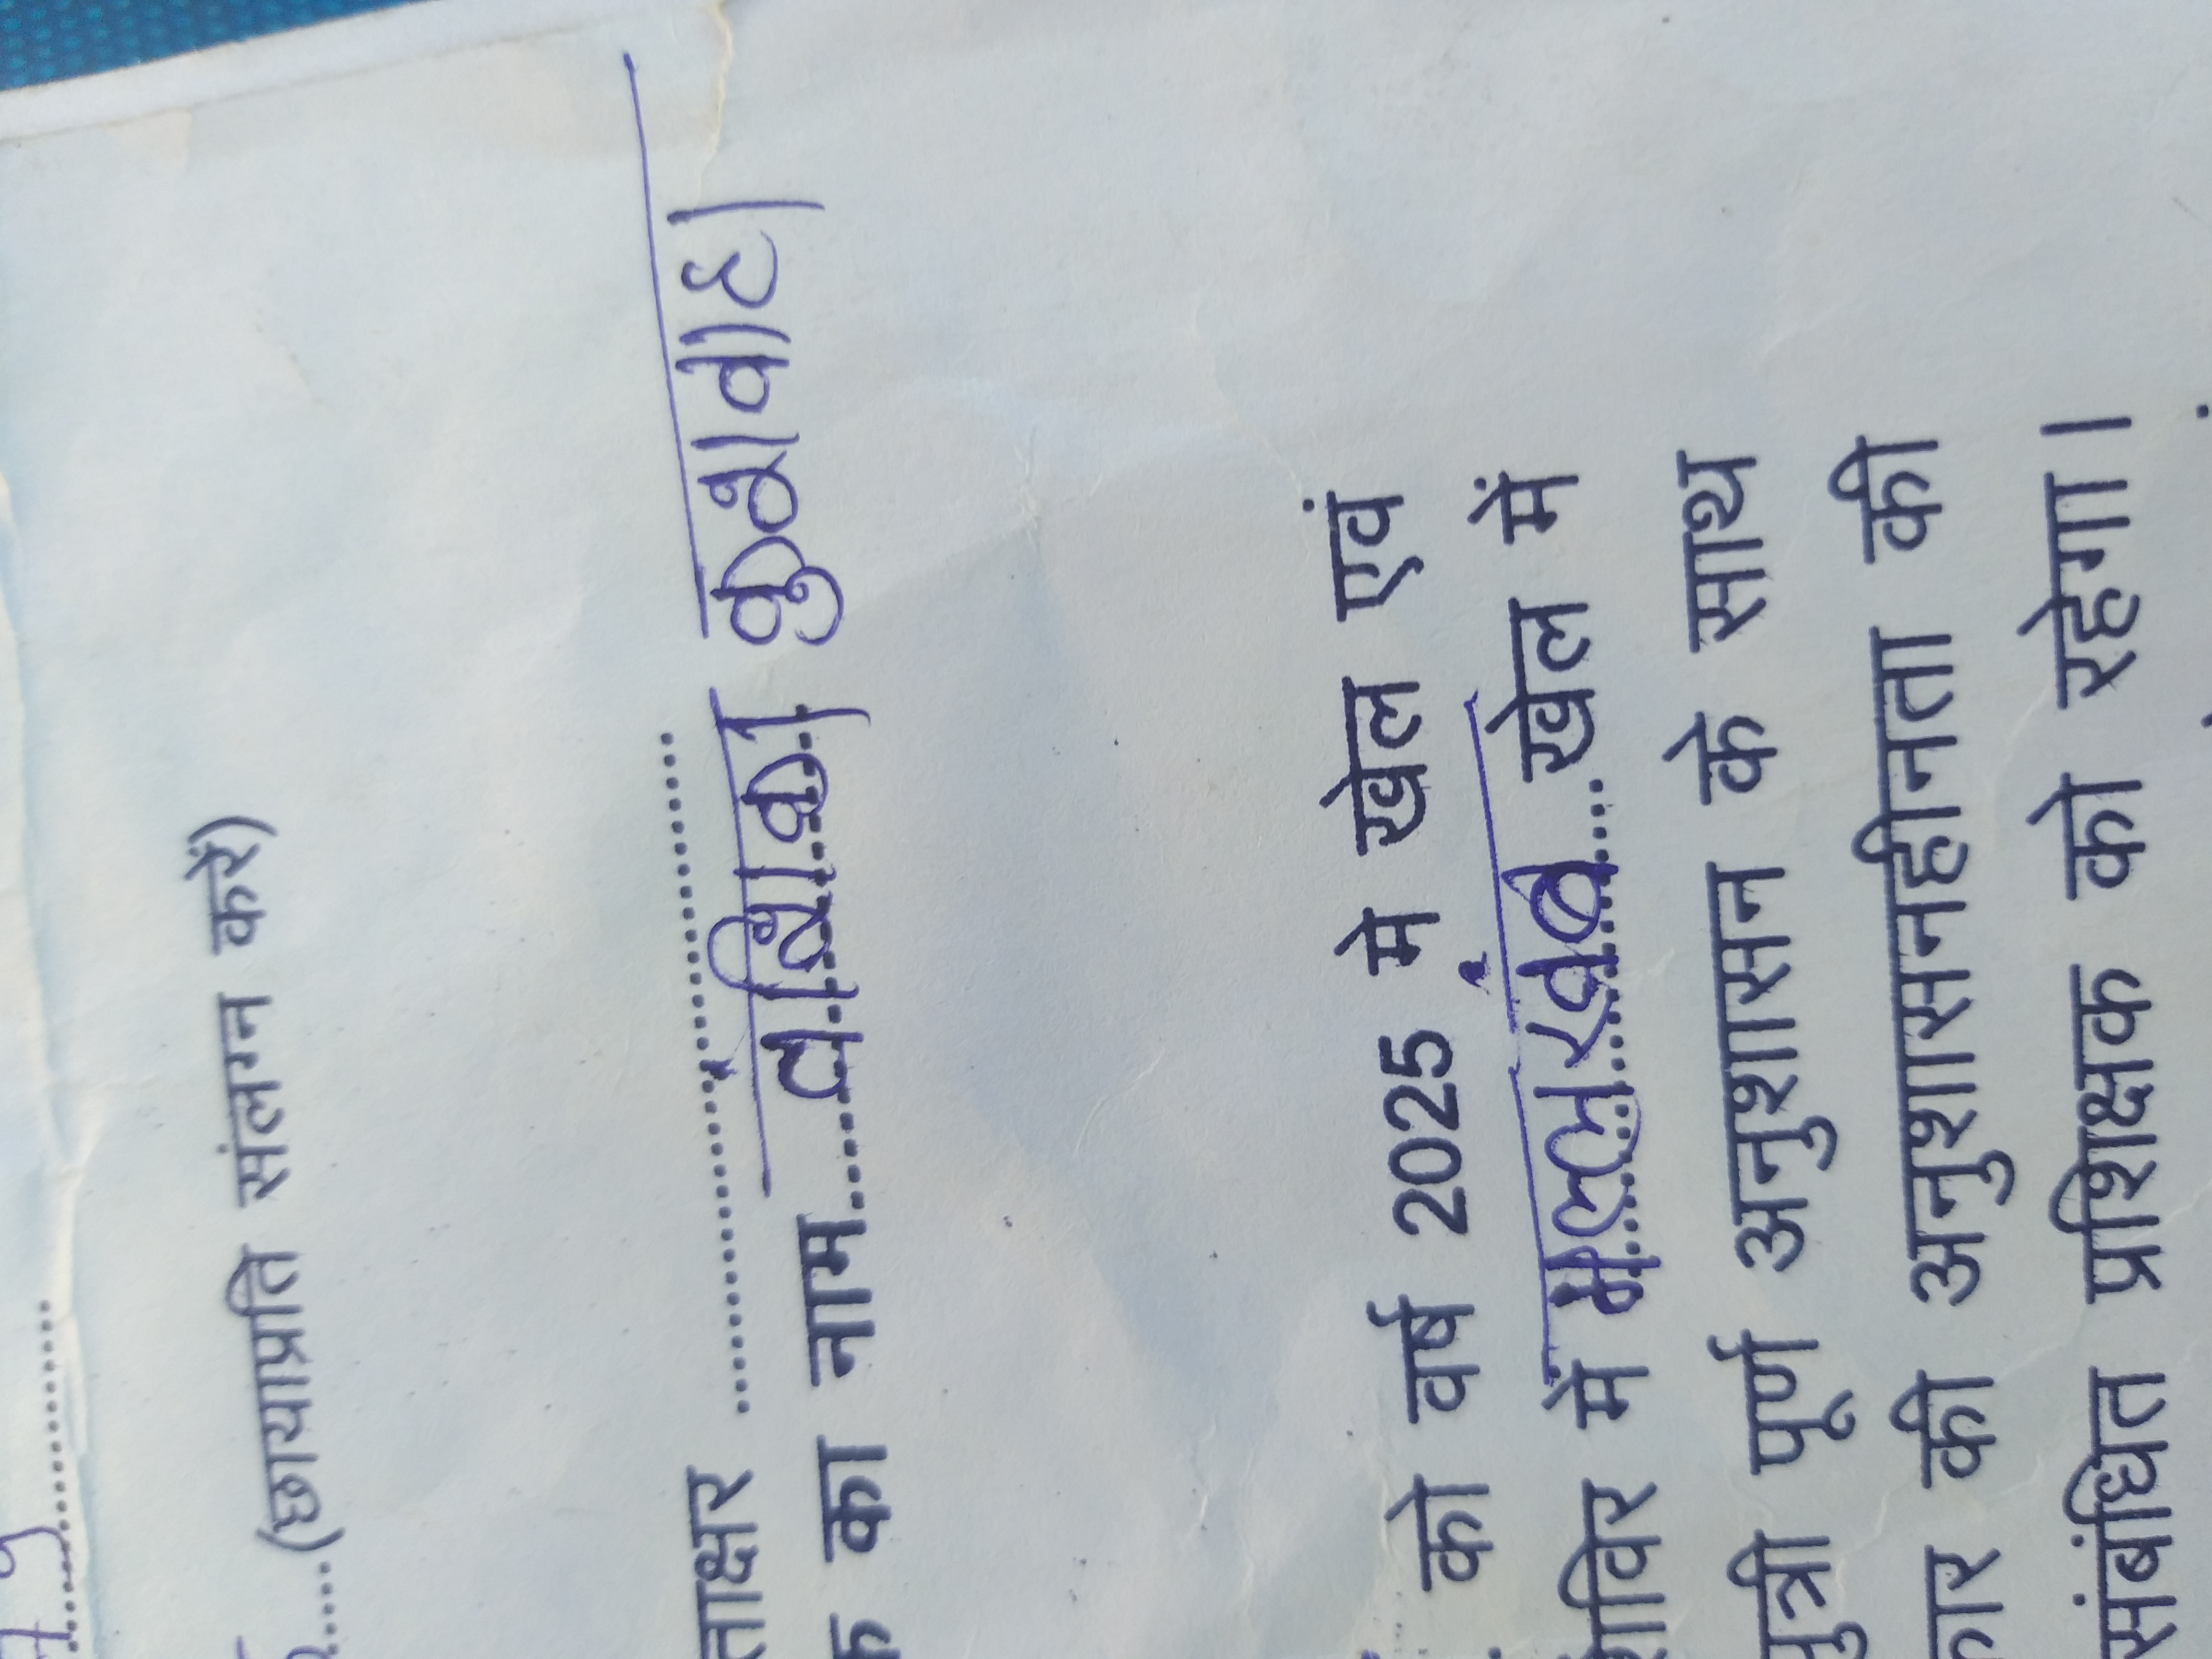 (छायाप्रति संलग्न करें)
का नाम वंशिका कुशवाहा
को वर्ष 2025 मे खेल एवं
में मल्लखंब खेल में
पूर्ण अनुशासन के साथ
की अनुशासनहीनता की
संबंधित प्रशिक्षक को रहेगा।